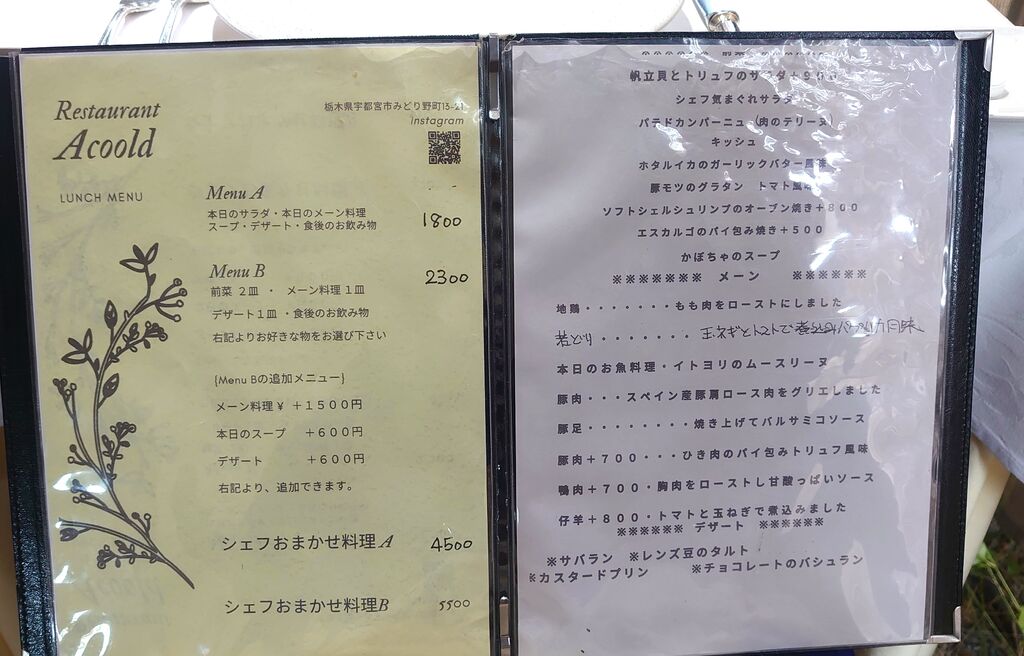 Restaurant
Acoold
栃木県宇都宮市みどり野町15-21
instagram
LUNCH MENU
Menu A
本日のサラダ・本日のメーン料理
スープ・デザート・食後のお飲み物
1800
Menu B
2300
前菜 2皿 ・ メーン料理 1皿
デザート1皿 ・食後のお飲み物
右記よりお好きな物をお選び下さい
{Menu Bの追加メニュー}
メーン料理¥ +1500円
本日のスープ +600円
デザート +600円
右記より、追加できます。
シェフおまかせ料理A 4500
シェフおまかせ料理B 5500
帆立貝とトリュフのサラダ+9
シェフ気まぐれサラダ
パテドカンパーニュ (肉のテリーヌ)
キッシュ
ホタルイカのガーリックバター風味
豚モツのグラタン トマト風味
ソフトシェルシュリンプのオーブン焼き+800
エスカルゴのパイ包み焼き+500
かぼちゃのスープ
※※※※※※※ メーン ※※※※※※
地鶏・・・・・・・もも肉をローストにしました
若どり・・・・・・・玉ネギとトマトで煮込み
本日のお魚料理・イトヨリのムースリーヌ
豚肉・・・スペイン産豚肩ロース肉をグリエしました
豚足・・・・・・・・焼き上げてバルサミコソース
豚肉+700・・・ひき肉のパイ包みトリュフ風味
鴨肉+700・胸肉をローストし甘酸っぱいソース
仔羊+800・トマトと玉ねぎで煮込みました
※※※※※※ デザート ※※※※※※
※サバラン ※レンズ豆のタルト
※カスタードプリン ※チョコレートのバシュラン